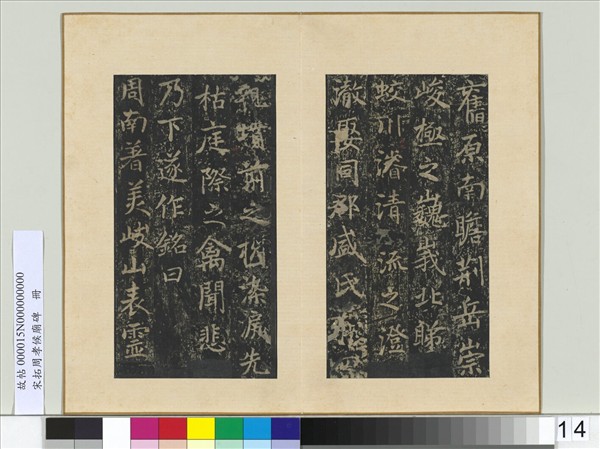 舊原南瞻荊岳崇
峻極之巍峩北睇
蛟川濬清流之澄
澈娶同郡盛氏
親墳前之染淚先
枯庭際之禽聞悲
乃下遂作銘曰
周南著美岐山表靈
故帖 000015N000000000
宋拓周孝侯廟碑 冊
14